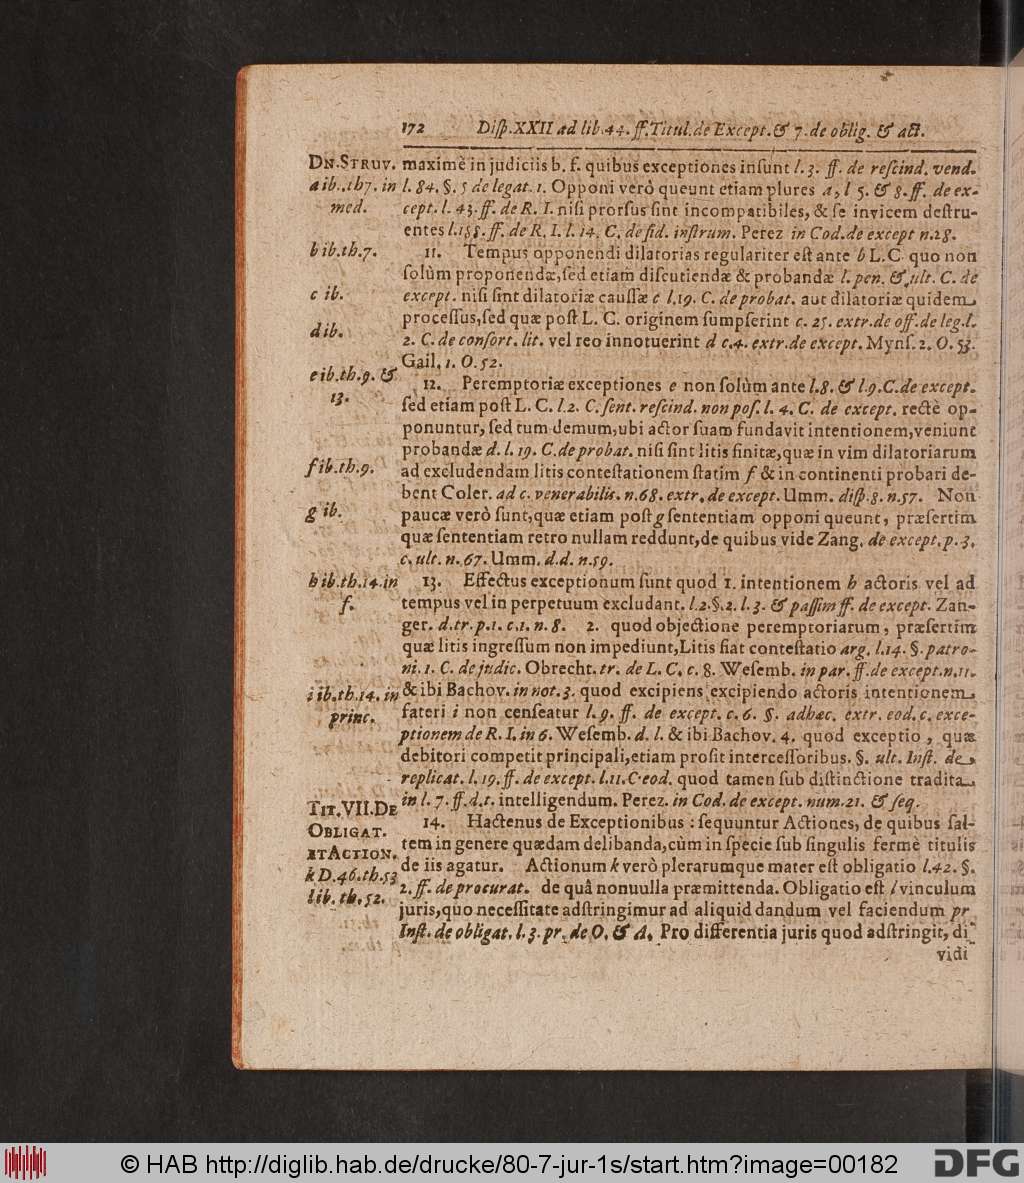 172 Diſp. XXII ad lib. 44. ff. Titul. de Except. & 7. de oblig. & act.
DN. STRUV. maximè in judiciis b. f. quibus exceptiones inſunt l. 3. ff. de reſcind. vend.
a ib. th 7. in l. 84. §. 5 de legat. 1. Opponi verò queunt etiam plures a, l 5. & 8. ff. de ex-
med. cept. l. 43. ff. de R. I. niſi prorſus ſint incompatibiles, & ſe invicem deſtru-
entes l. 188. ff. de R. I. l. 14. C. de fid. inſtrum. Perez in Cod. de except n. 28.
b ib. th. 7. 11. Tempus opponendi dilatorias regulariter eſt ante b L. C. quo non
ſolùm proponendæ, ſed etiam diſcutiendæ & probandæ l. pen. & ult. C. de
c ib. except. niſi ſint dilatoriæ cauſſæ c l. 19. C. de probat. aut dilatoriæ quidem
proceſſus, ſed quæ poſt L. C. originem ſumpſerint c. 25. extr. de off. de leg. l.
d ib. 2. C. de conſort. lit. vel reo innotuerint d c. 4. extr. de except. Mynſ. 2. O. 53.
Gail. 1. O. 52.
e ib. th. 9. & 12. Peremptoriæ exceptiones e non ſolùm ante l. 8. & l. 9. C. de except.
13. ſed etiam poſt L. C. l. 2. C. ſent. reſcind. non poſ. l. 4. C. de except. rectè op-
ponuntur, ſed tum demum, ubi actor ſuam fundavit intentionem, veniunt
probandæ d. l. 19. C. de probat. niſi ſint litis finitæ, quæ in vim dilatoriarum
f ib. th. 9. ad excludendam litis conteſtationem ſtatim f & in continenti probari de-
bent Coler. ad c. venerabilis. n. 68. extr. de except. Umm. diſp. 8. n. 57. Non
g ib. paucæ verò ſunt, quæ etiam poſt g ſententiam opponi queunt, præſertim
quæ ſententiam retro nullam reddunt, de quibus vide Zang. de except. p. 3.
c. ult. n. 67. Umm. d. d. n. 59.
h ib. th. 14. in 13. Effectus exceptionum ſunt quod 1. intentionem h actoris vel ad
f. tempus vel in perpetuum excludant. l. 2. §. 2. l. 3. & paſſim ff. de except. Zan-
ger. d. tr. p. 1. c. 1. n. 8. 2. quod objectione peremptoriarum, præſertim
quæ litis ingreſſum non impediunt, Litis fiat conteſtatio arg. l. 14. §. patro-
ni. 1. C. de judic. Obrecht. tr. de L. C. c. 8. Weſemb. in par. ff. de except. n. 11.
i ib. th. 14. in & ibi Bachov. in not. 3. quod excipiens excipiendo actoris intentionem
princ. fateri i non cenſeatur l. 9. ff. de except. c. 6. §. adhæc. extr. eod. c. exce-
ptionem de R. I. in 6. Weſemb. d. l. & ibi Bachov. 4. quod exceptio, quæ
debitori competit principali, etiam proſit interceſſoribus. §. ult. Inſt. de
replicat. l. 19. ff. de except. l. 11. C. eod. quod tamen ſub diſtinctione tradita
TIT. VII. DE in l. 7. ff. d. t. intelligendum. Perez. in Cod. de except. num. 21. & ſeq.
OBLIGAT. 14. Hactenus de Exceptionibus: ſequuntur Actiones, de quibus ſal-
ET ACTION. tem in genere quædam delibanda, cùm in ſpecie ſub ſingulis fermè titulis
k D. 46. th. 53 de iis agatur. Actionum k verò plerarumque mater eſt obligatio l. 42. §.
l ib. th. 52. 2. ff. de procurat. de quâ nonuulla præmittenda. Obligatio eſt l vinculum
juris, quo neceſſitate adſtringimur ad aliquid dandum vel faciendum pr
Inſt. de obligat. l. 3. pr. de O. & A. Pro differentia juris quod adſtringit, di-
vidi
© HAB http://diglib.hab.de/drucke/80-7-jur-1s/start.htm?image=00182 DFG